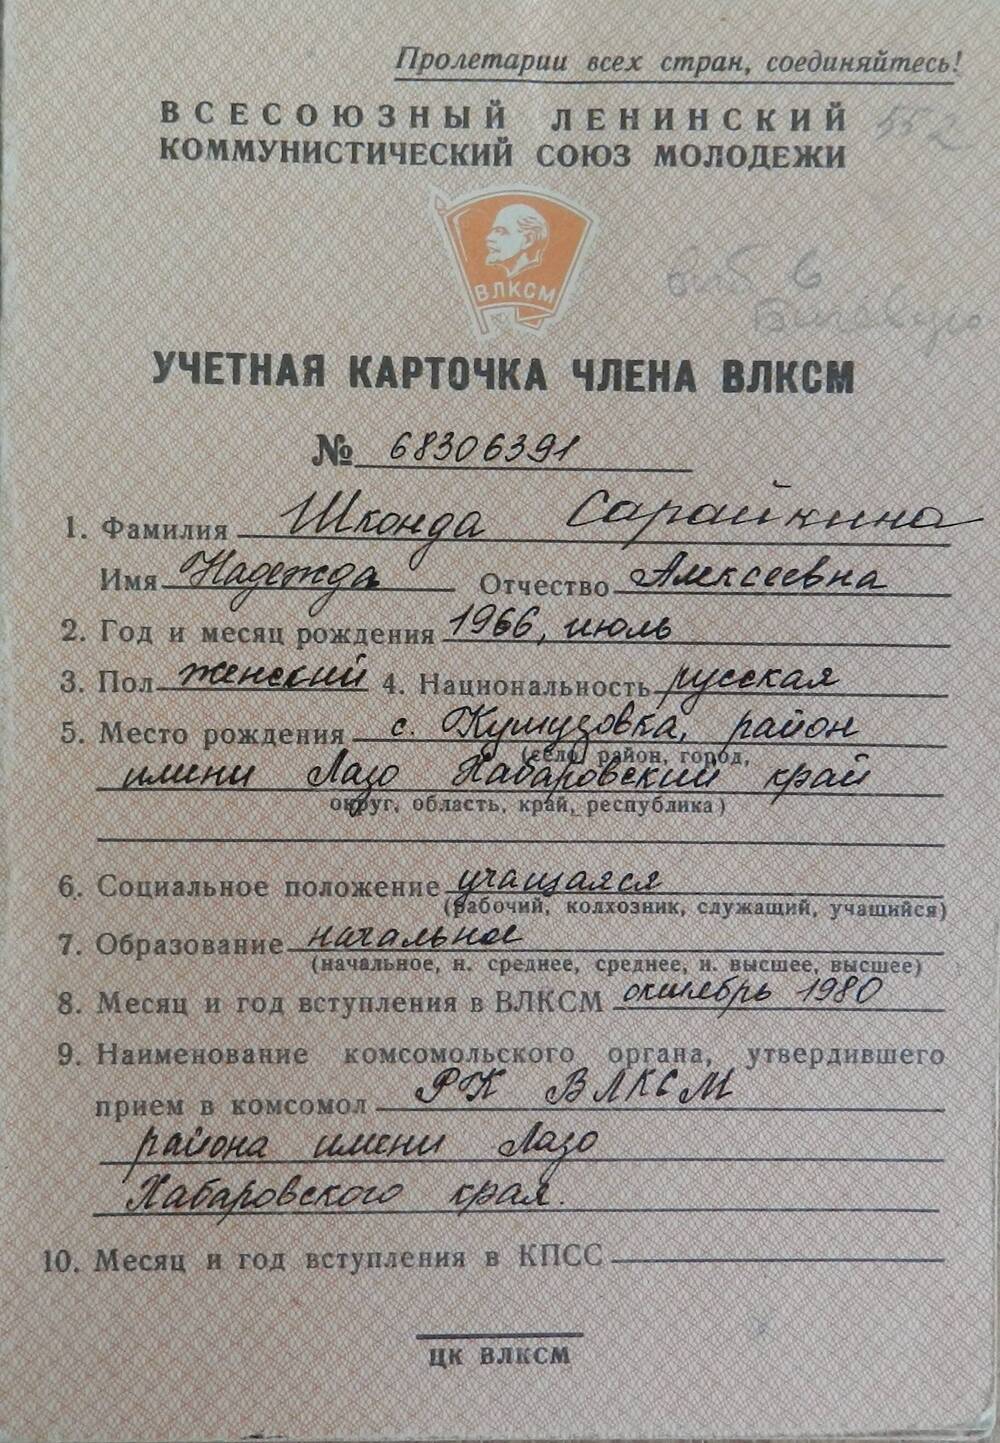 Пролетарии всех стран, соединяйтесь!
ВСЕСОЮЗНЫЙ ЛЕНИНСКИЙ
КОММУНИСТИЧЕСКИЙ СОЮЗ МОЛОДЕЖИ
552
ВЛКСМ
выб в
УЧЕТНАЯ КАРТОЧКА ЧЛЕНА ВЛКСМ
№ 68306391
1. Фамилия Шконда Сарайкина
Имя Надежда Отчество Алексеевна
2. Год и месяц рождения 1966, июль
3. Пол женский 4. Национальность русская
5. Место рождения с. Кумузовка, район
(село, район, город,
имени Лазо Хабаровский край
округ, область, край, республика)
6. Социальное положение учащаяся
(рабочий, колхозник, служащий, учащийся)
7. Образование начальное
(начальное, н. среднее, среднее, н. высшее, высшее)
8. Месяц и год вступления в ВЛКСМ октябрь 1980
9. Наименование комсомольского органа, утвердившего
прием в комсомол РК ВЛКСМ
района имени Лазо
Хабаровского края.
10. Месяц и год вступления в КПСС
ЦК ВЛКСМ